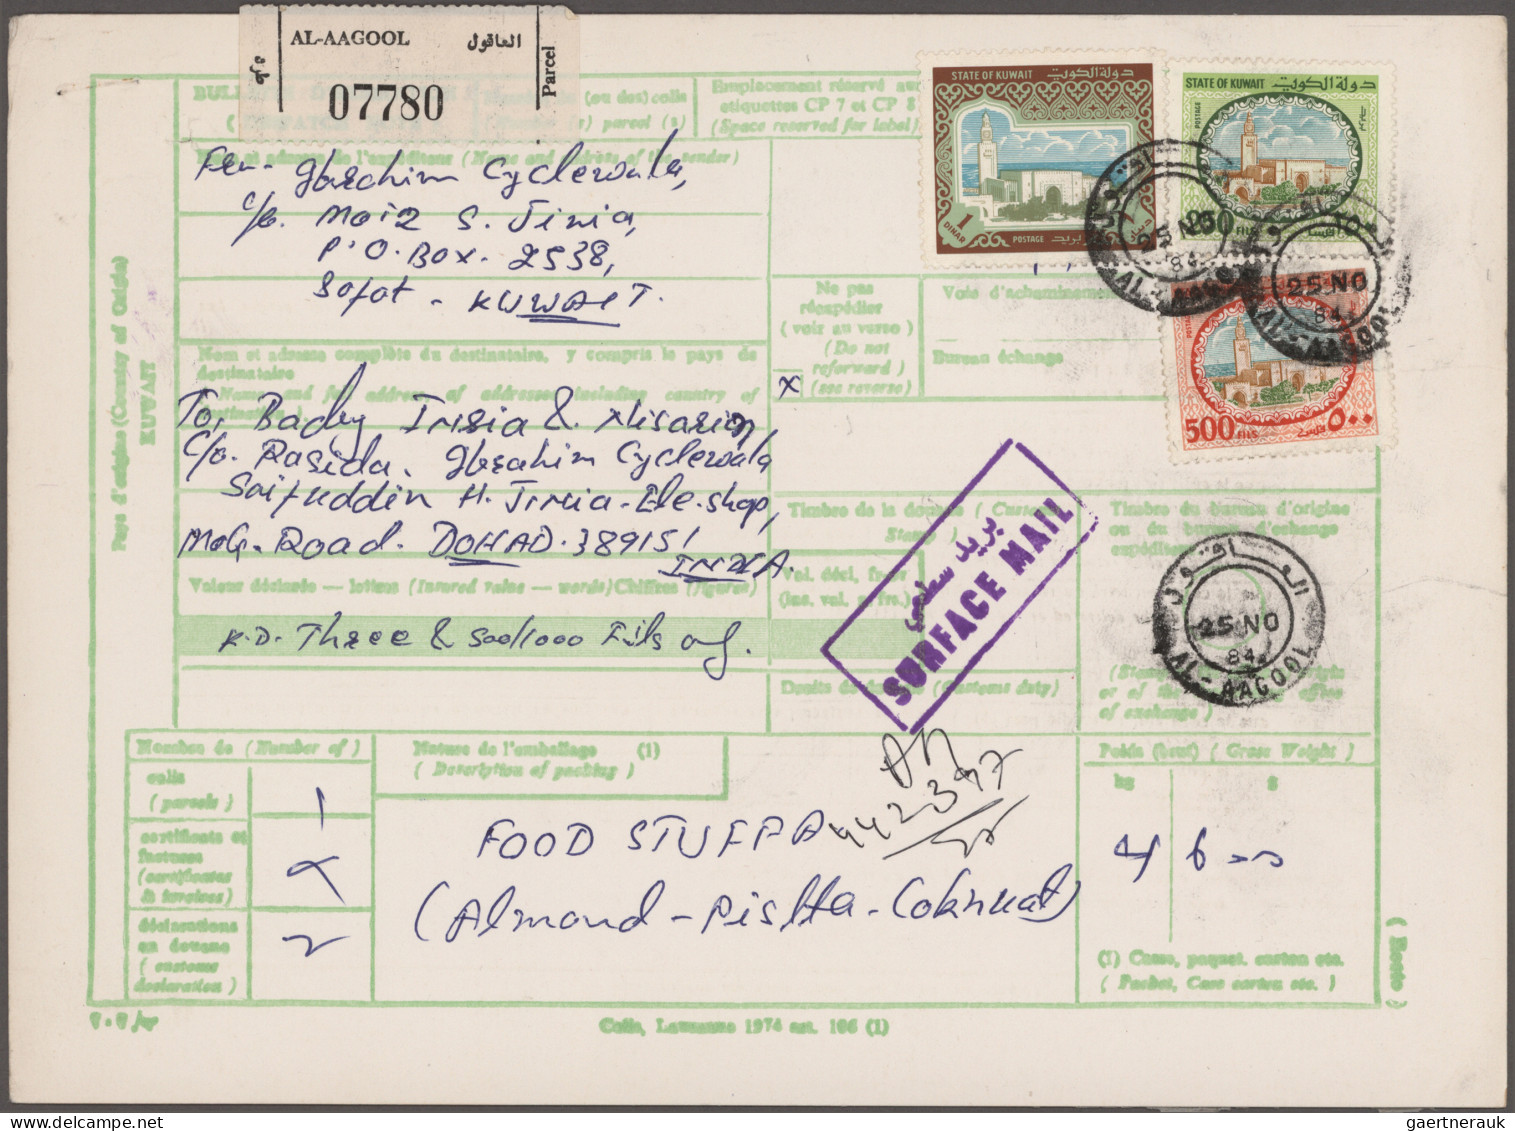 AL-AAGOOL العاقول
طرد
07780
Parcel
(ou des) colis
parcel (s)
Emplacement réservé aux
etiquettes CP 7 et CP 8
(Space reserved for label)
(Name and address of the sender)
Cyclewala,
C/o. Moiz S. Jinia,
P.O. Box. 2538,
Safat - KUWAIT.
Pays d'origine (Country of Origin)
KUWAIT
STATE OF KUWAIT دولة الكويت
1
DINAR
POSTAGE بريد
STATE OF KUWAIT دولة الكويت
POSTAGE
250
FILS
500 FILS ٥٠٠
Ne pas
réexpédier
(voir au verso)
(Do not
reforward)
(see reverse)
x
Voie d'acheminement
Bureau échange
25 NO
84
AL-AAGOOL
25 NO
84
AL-AAGOOL
Nom et adresse complète du destinataire, y compris le pays de
destinataire
Name and full address of addressee including country of
destination
To,
C/o. Rasida. Ibrahim Cyclewala
Saifuddin H. Jinia - Ele. shop,
Road. DOHAD. 389151
INDIA.
Timbre de la douane (Customs
Stamp)
Timbre du bureau d'origine
ou du bureau d'échange
بريد سطحي
SURFACE MAIL
Valeur déclarée — lettres (Insured value — words) Chiffres (figures)
Val. décl, frs-or
(ins. val. g. frs.)
K.D. Three & 500/1000 Fils
العاقول
25 NO
84
AL-AAGOOL
Droits de (Customs duty)
or of the office
of exchange)
Nombre de (Number of)
colis
(parcels)
1
certificats et
factures
(certificates
& invoices)
déclarations
en douane
(customs
declaration)
2
Nature de l'emballage (1)
(Description of packing)
FOOD STUFF
(Almond - Pishta - Coknuat)
442397
Poids (brut) (Gross Weight)
kg g
4 6
(1) Casse, paquet. carton etc.
(Packet, Case carton etc.)
(Recto)
Colis, Lausanne 1974 art. 106 (1)
gaertnerauk